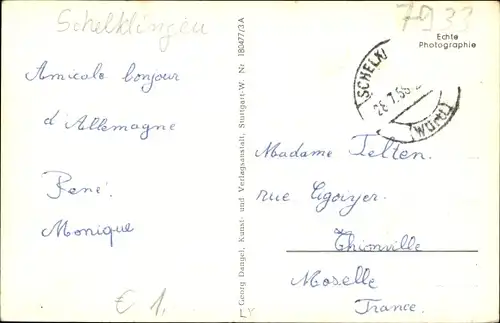 Schelklingen
7933
Echte
Photographie
SCHELK
28.7.66
(WÜRTT)
Amicale bonjour
d'Allemagne
René.
Monique
Georg Dangel, Kunst- und Verlagsanstalt, Stuttgart-W. Nr 180477/3A
Madame Telten.
rue
Thionville
Moselle
France.
€ 1,